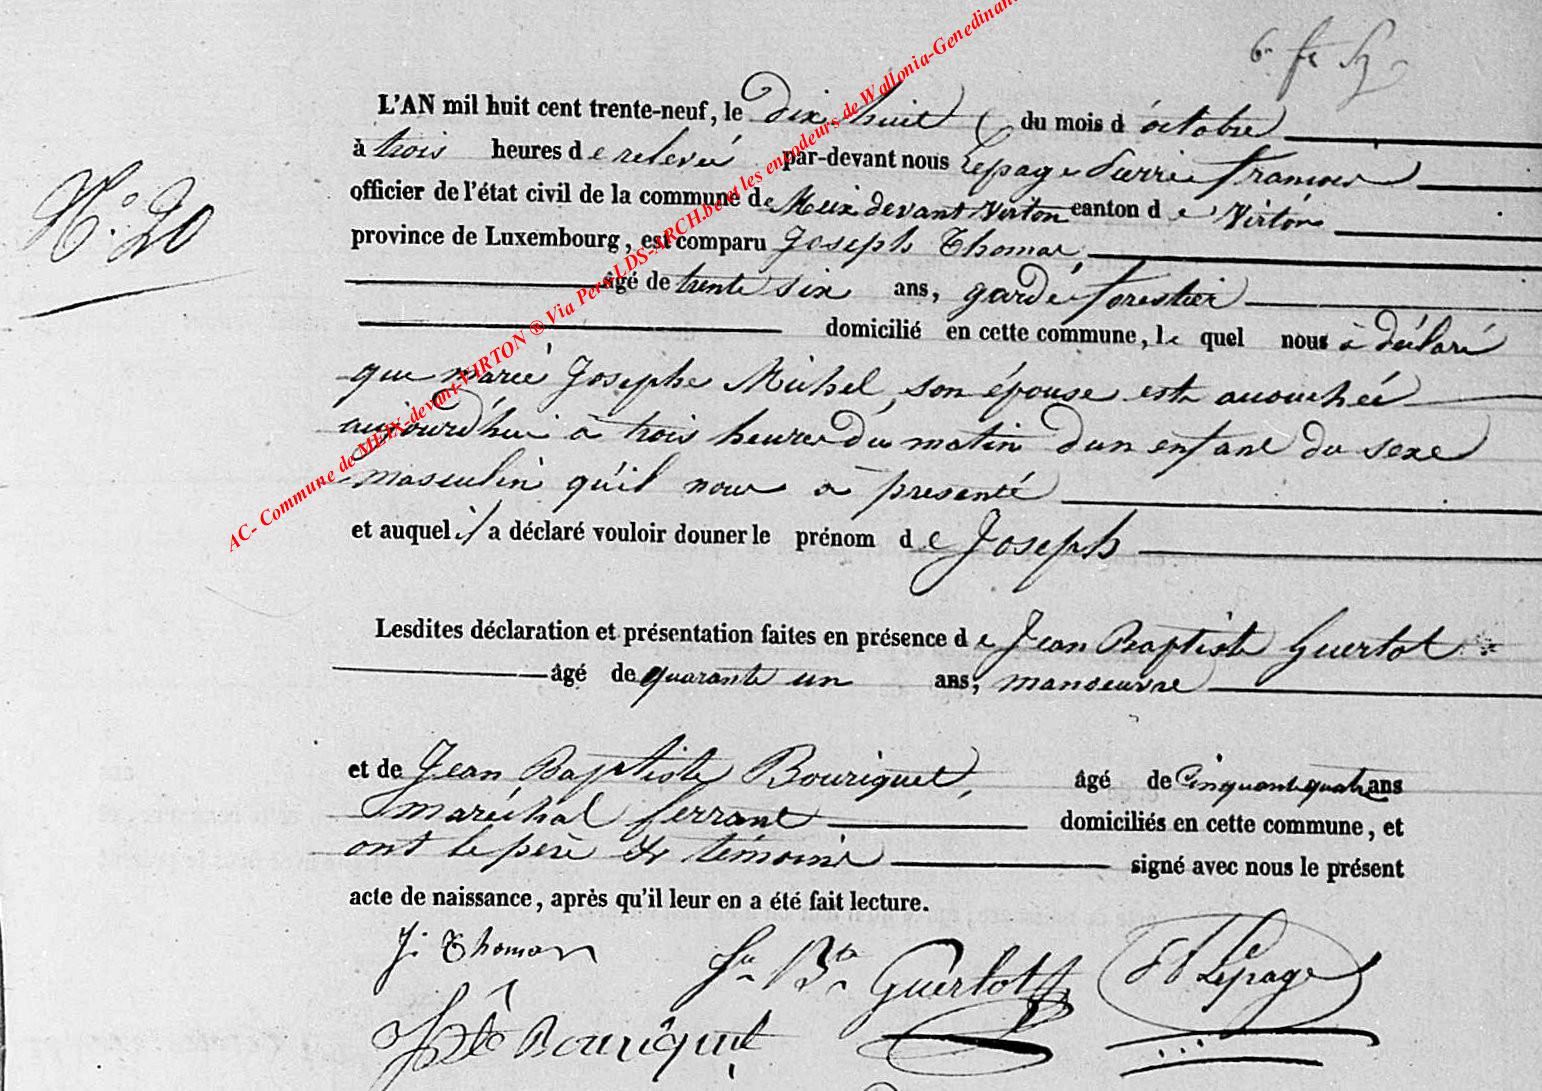 L'AN mil huit cent trente-neuf, le dix huit du mois d'octobre
à trois heures de relevée par-devant nous Lepage Pierre françois
N.° 20
officier de l'état civil de la commune de Meix devant Virton canton de Virton
province de Luxembourg, est comparu Joseph Thomas,
âgé de trente six ans, garde forestier
domicilié en cette commune, le quel nous à déclaré
que marie Josephe Michel, son épouse est accouchée
aujourd'hui à trois heures du matin d'un enfant du sexe
masculin qu'il nous à presenté
et auquel il a déclaré vouloir douner le prénom de Joseph
Lesdites déclaration et présentation faites en présence de Jean Baptiste Guertot
âgé de quarante un ans, manoeuvre
et de Jean Baptiste Bouriquet, âgé de Cinquante quatre ans
maréchal ferrant domiciliés en cette commune, et
ont le père & témoins signé avec nous le présent
acte de naissance, après qu'il leur en a été fait lecture.
J. Thomas Jn Bte Guertot Lepage
JBte Bouriquet
AC- Commune de MEIX-devant-VIRTON ® Via Pero-LDS-ARCH.be et les encodeurs de Wallonia-Genedinant